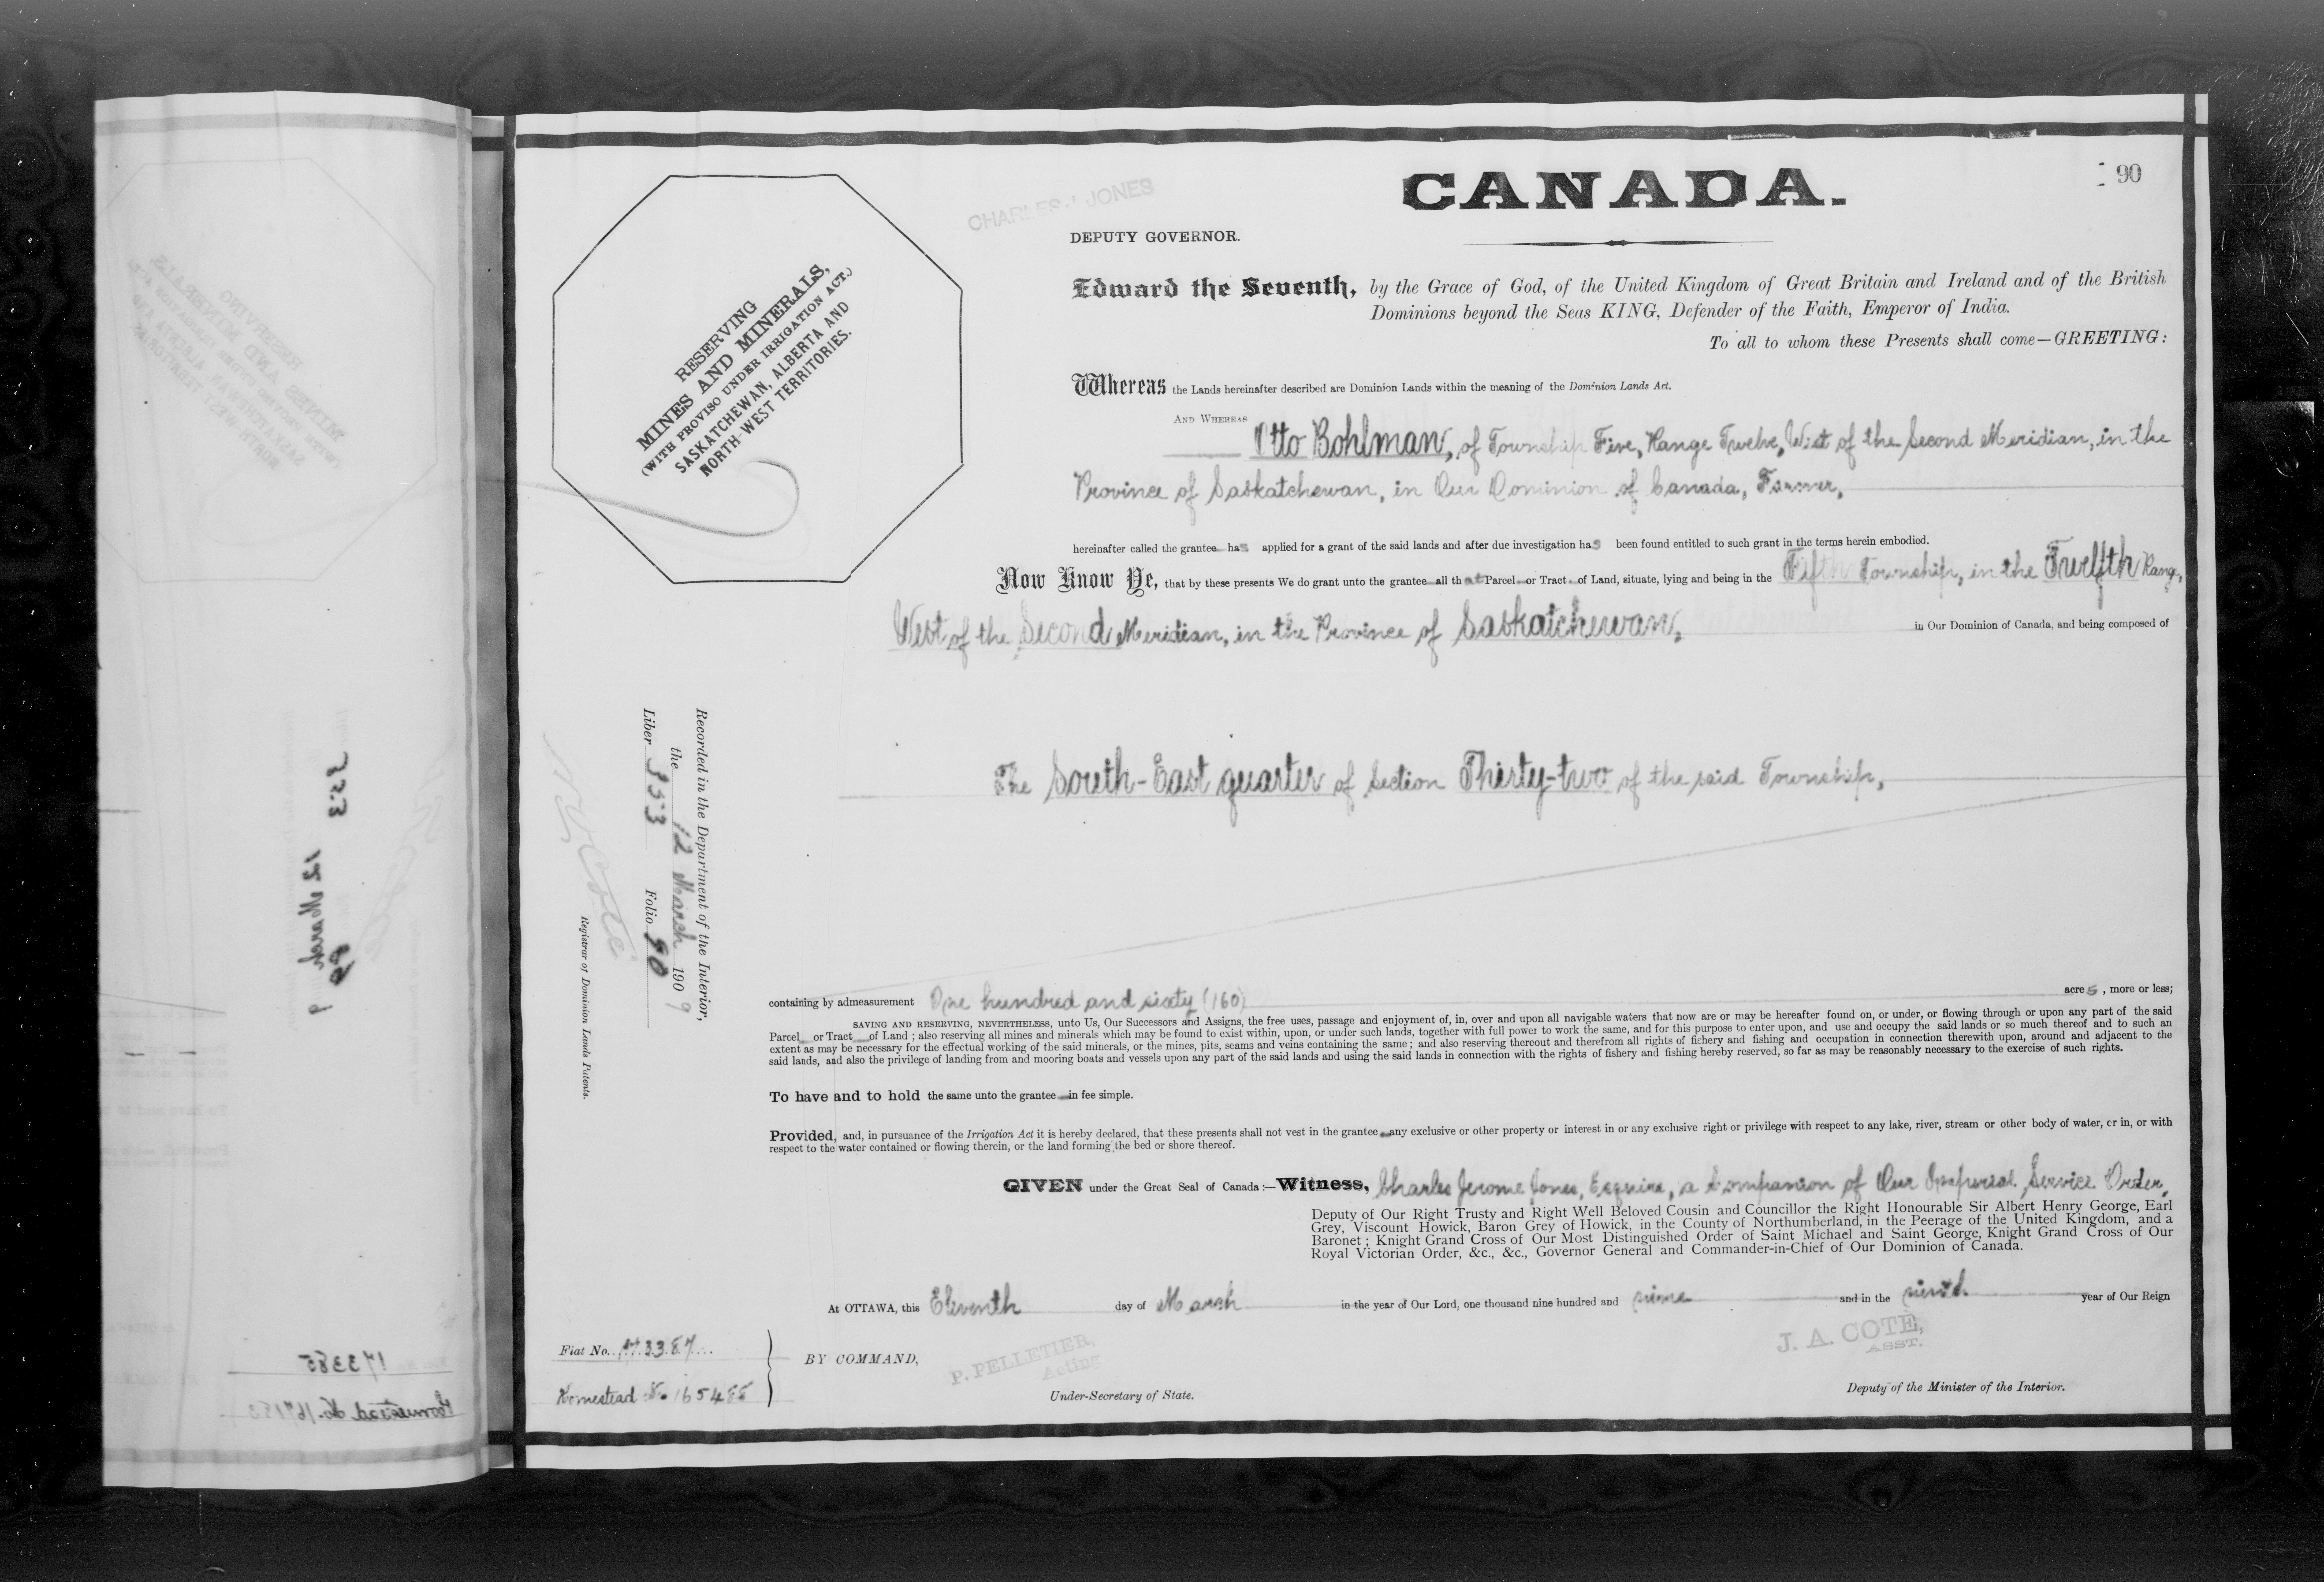 CANADA.
90
CHARLES J. JONES
DEPUTY GOVERNOR.
RESERVING
MINES AND MINERALS,
(WITH PROVISO UNDER IRRIGATION ACT.)
SASKATCHEWAN, ALBERTA AND
NORTH-WEST TERRITORIES.
Edward the Seventh, by the Grace of God, of the United Kingdom of Great Britain and Ireland and of the British
Dominions beyond the Seas KING, Defender of the Faith, Emperor of India.
To all to whom these Presents shall come—GREETING:
Whereas the Lands hereinafter described are Dominion Lands within the meaning of the Dominion Lands Act.
AND WHEREAS
Otto Bohlman, of Township Five, Range Twelve, West of the Second Meridian, in the
Province of Saskatchewan, in Our Dominion of Canada, Farmer,
hereinafter called the grantee has applied for a grant of the said lands and after due investigation has been found entitled to such grant in the terms herein embodied.
Now Know Ye, that by these presents We do grant unto the grantee all that Parcel or Tract of Land, situate, lying and being in the Fifth Township, in the Twelfth Range,
West of the Second Meridian, in the Province of Saskatchewan, in Our Dominion of Canada, and being composed of
The South-East quarter of Section Thirty-two of the said Township,
Recorded in the Department of the Interior,
the 12 March 1909
Liber 353 Folio 90
N.O. Coté
Registrar of Dominion Lands Patents.
containing by admeasurement One hundred and sixty (160) acres, more or less;
SAVING AND RESERVING, NEVERTHELESS, unto Us, Our Successors and Assigns, the free uses, passage and enjoyment of, in, over and upon all navigable waters that now are or may be hereafter found on, or under, or flowing through or upon any part of the said
Parcel or Tract of Land; also reserving all mines and minerals which may be found to exist within, upon, or under such lands, together with full power to work the same, and for this purpose to enter upon, and use and occupy the said lands or so much thereof and to such an
extent as may be necessary for the effectual working of the said minerals, or the mines, pits, seams and veins containing the same; and also reserving thereout and therefrom all rights of fishery and fishing and occupation in connection therewith upon, around and adjacent to the
said lands, and also the privilege of landing from and mooring boats and vessels upon any part of the said lands and using the said lands in connection with the rights of fishery and fishing hereby reserved, so far as may be reasonably necessary to the exercise of such rights.
To have and to hold the same unto the grantee in fee simple.
Provided, and, in pursuance of the Irrigation Act it is hereby declared, that these presents shall not vest in the grantee any exclusive or other property or interest in or any exclusive right or privilege with respect to any lake, river, stream or other body of water, or in, or with
respect to the water contained or flowing therein, or the land forming the bed or shore thereof.
GIVEN under the Great Seal of Canada:—Witness, Charles Jerome Jones, Esquire, a Companion of Our Imperial Service Order,
Deputy of Our Right Trusty and Right Well Beloved Cousin and Councillor the Right Honourable Sir Albert Henry George, Earl
Grey, Viscount Howick, Baron Grey of Howick, in the County of Northumberland, in the Peerage of the United Kingdom, and a
Baronet; Knight Grand Cross of Our Most Distinguished Order of Saint Michael and Saint George, Knight Grand Cross of Our
Royal Victorian Order, &c., &c., Governor General and Commander-in-Chief of Our Dominion of Canada.
At OTTAWA, this Eleventh day of March in the year of Our Lord, one thousand nine hundred and nine and in the ninth year of Our Reign
Fiat No. 173387
Homestead No.
BY COMMAND,
P. PELLETIER,
Acting
Under-Secretary of State.
J. A. COTE,
ASST.
Deputy of the Minister of the Interior.
353
12 March 9
89
173385
Homestead No.